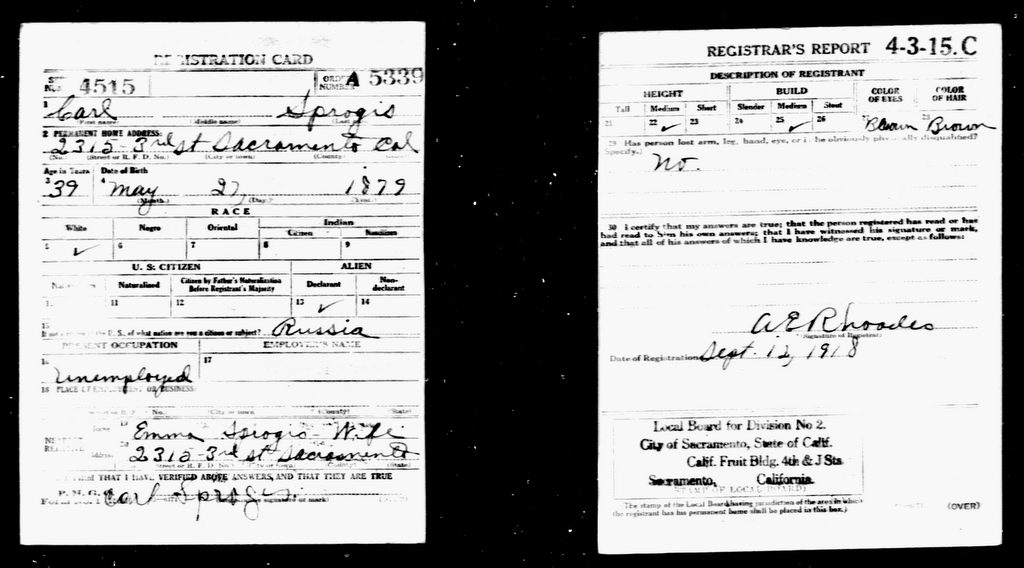 REGISTRATION CARD
4515 ORDER NUMBER A 5339
1 Carl Sprogis
(First name) (Middle name) (Last)
2 PERMANENT HOME ADDRESS:
2315-3rd St Sacramento Cal
(No.) (Street or R. F. D. No.) (City or town) (County)
Age in Years Date of Birth
3 39 4 May 27 1879
(Month.) (Day.) (Year.)
RACE
White Negro Oriental Indian
Citizen
5 ✓ 6 7 8 9
U. S. CITIZEN ALIEN
Naturalized Citizen by Father's Naturalization Before Registrant's Majority Declarant Non-declarant
11 12 13 ✓ 14
15
If not a citizen of the U. S., of what nation are you a citizen or subject? Russia
PRESENT OCCUPATION EMPLOYER'S NAME
16 17
Unemployed
18 PLACE OF EMPLOYMENT OR BUSINESS:
No. (City or town) (County) (State)
Name 19 Emma Sprogis - Wife
Address 20 2315-3rd St Sacramento
(Street or R. F. D. No.) (City or town) (County) (State)
THAT I HAVE VERIFIED ABOVE ANSWERS, AND THAT THEY ARE TRUE
P. M. G. O.
Carl Sprogis
REGISTRAR'S REPORT 4-3-15. C
DESCRIPTION OF REGISTRANT
HEIGHT BUILD COLOR OF EYES COLOR OF HAIR
Tall Medium Short Slender Medium Stout
21 22 ✓ 23 24 25 ✓ 26 27 Brown 28 Brown
29 Has person lost arm, leg, hand, eye, or is he obviously physically disqualified?
(Specify.) No.
30 I certify that my answers are true; that the person registered has read or has
had read to him his own answers; that I have witnessed his signature or mark,
and that all of his answers of which I have knowledge are true, except as follows:
A E Rhoades
(Signature of Registrar)
Date of Registration Sept. 12, 1918
Local Board for Division No 2.
City of Sacramento, State of Calif.
Calif. Fruit Bldg. 4th & J Sts.
Sacramento, California.
(STAMP OF LOCAL BOARD)
(The stamp of the Local Board having jurisdiction of the area in which
the registrant has his permanent home shall be placed in this box.)
(OVER)